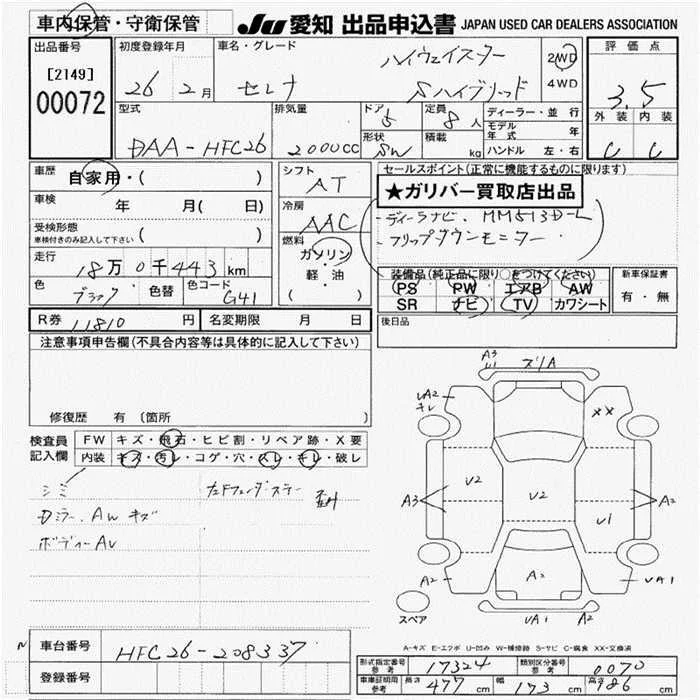 車内保管・守衛保管
JU 愛知 出品申込書 JAPAN USED CAR DEALERS ASSOCIATION
出品番号
[2149]
00072
初度登録年月
26年 2月
車名・グレード
ハイウェイスター
セレナ Sハイブリッド
2WD
4WD
評価点
3.5
外装 内装
C C
型式
DAA-HFC26
排気量
2000cc
ドア
5
形状
SW
定員
8人
積載 kg
ディーラー・並行
モデル年式 年
ハンドル 左・右
車歴
自家用・( )
車検 年 月( 日)
受検形態
車検付きのみ記入して下さい ( )
走行
18万0千443km
色
ブラック
色替
色コード
G41
シフト
AT
冷房
AAC
燃料
ガソリン
・
軽・油
( )
セールスポイント(正常に機能するものに限ります)
★ガリバー買取店出品
-ディーラナビ、MM513D-L
-フリップダウンモニター
装備品(純正品に限り○をつけてください)
PS PW エアB AW
SR ナビ TV カワシート
新車保証書
有・無
後日品
R券 11810円
名変期限 月 日
注意事項申告欄(不具合内容等は具体的に記入して下さい)
修復歴 有 〔箇所 〕
検査員記入欄
FW キズ・飛石・ヒビ割・リペア跡・X要
内装 キズ・汚レ・コゲ・穴・スレ・キレ・破レ
シミ
Dミラー、AW キズ
ボディーAU
A3
ズリA
UA2
キレ
XX
U2
U2
U1
A3
A2
A2
A2
UA1
UA1
A2
スペア
A-キズ E-エクボ U-凹み W-補修跡 S-サビ C-腐食 XX-交換済
車台番号 HFC26-208337
登録番号
形式指定番号
参考
17324
類別区分番号
参考
0070
車庫証明用
参考
長さ 477cm 幅 173cm 高さ 186cm